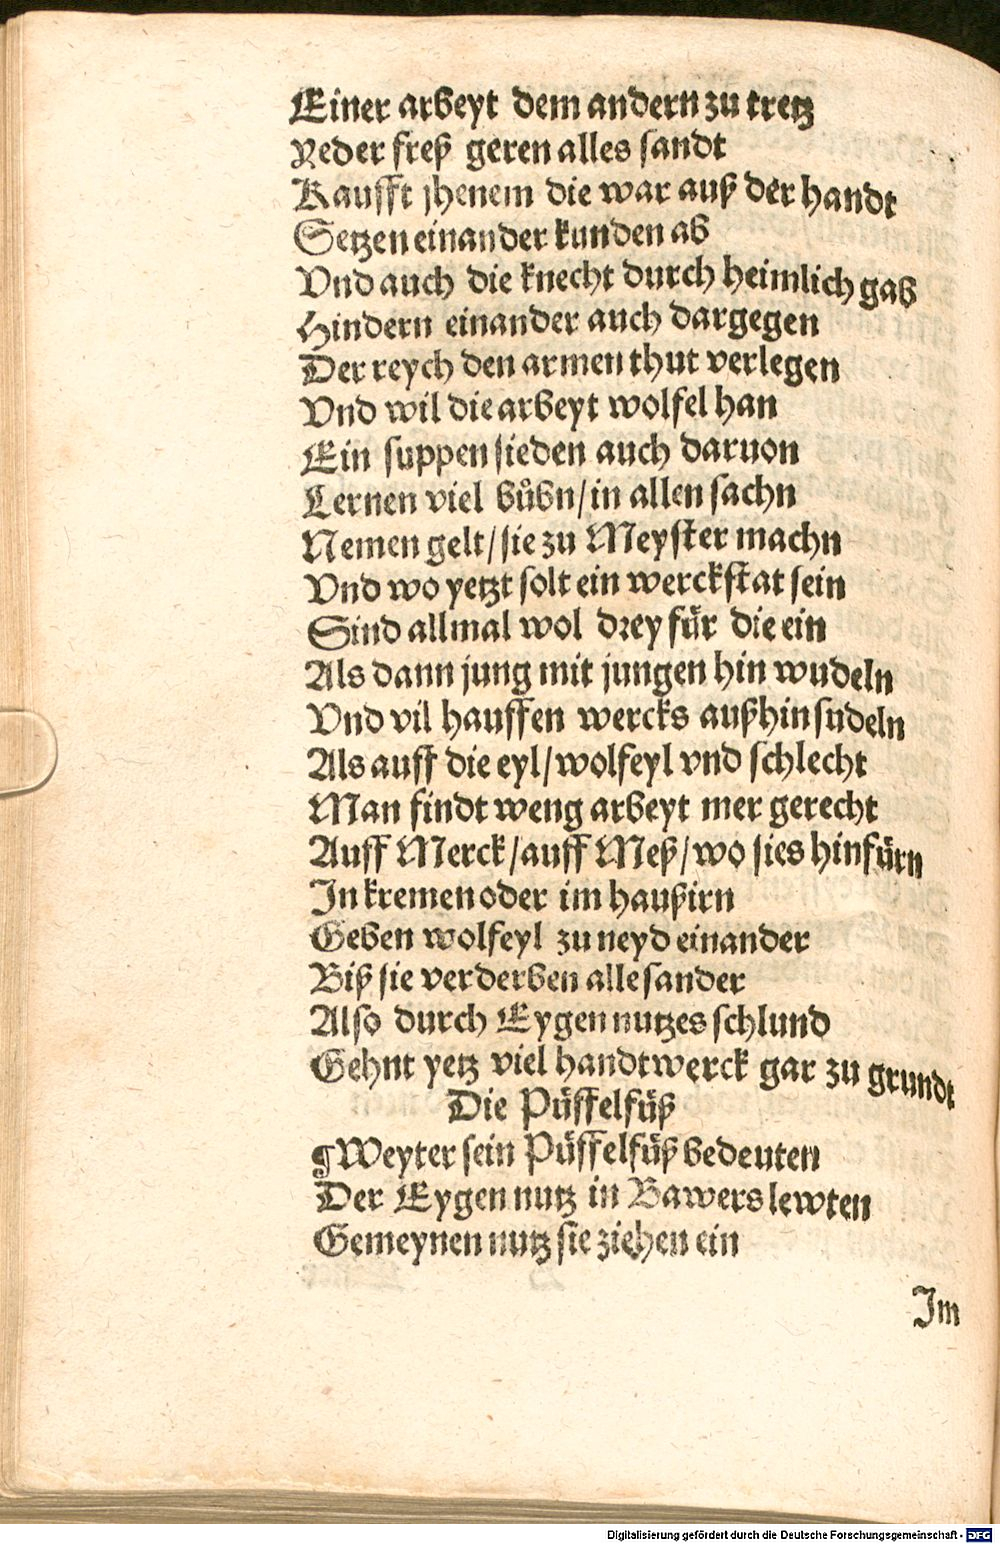 Einer arbeyt dem andern zu tretz
Yeder freß geren alles sandt
Kaufft jhenem die war auß der handt
Setzen einander kunden ab
Vnd auch die knecht durch heimlich gab
Hindern einander auch dargegen
Der reych den armen thut verlegen
Vnd wil die arbeyt wolfel han
Ein suppen sieden auch daruon
Lernen viel bůbn/in allen sachn
Nemen gelt/sie zu Meyster machn
Vnd wo yetzt solt ein werckstat sein
Sind allmal wol drey für die ein
Als dann jung mit jungen hin wudeln
Vnd vil hauffen wercks außhin sudeln
Als auff die eyl/wolfeyl vnd schlecht
Man findt weng arbeyt mer gerecht
Auff Merck/auff Meß/wo sies hinfürn
In kremen oder im haußirn
Geben wolfeyl zu neyd einander
Biß sie verderben alle sander
Also durch Eygen nutzes schlund
Gehnt yetz viel handtwerck gar zu grundt
Die Püffelfüß
¶Weyter sein Püffelfüß bedeuten
Der Eygen nutz in Bawers lewten
Gemeynen nutz sie ziehen ein
Im
Digitalisierung gefördert durch die Deutsche Forschungsgemeinschaft - DFG